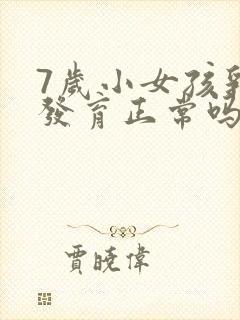 7歲小女孩乳
發育正常嗎
賈曉偉